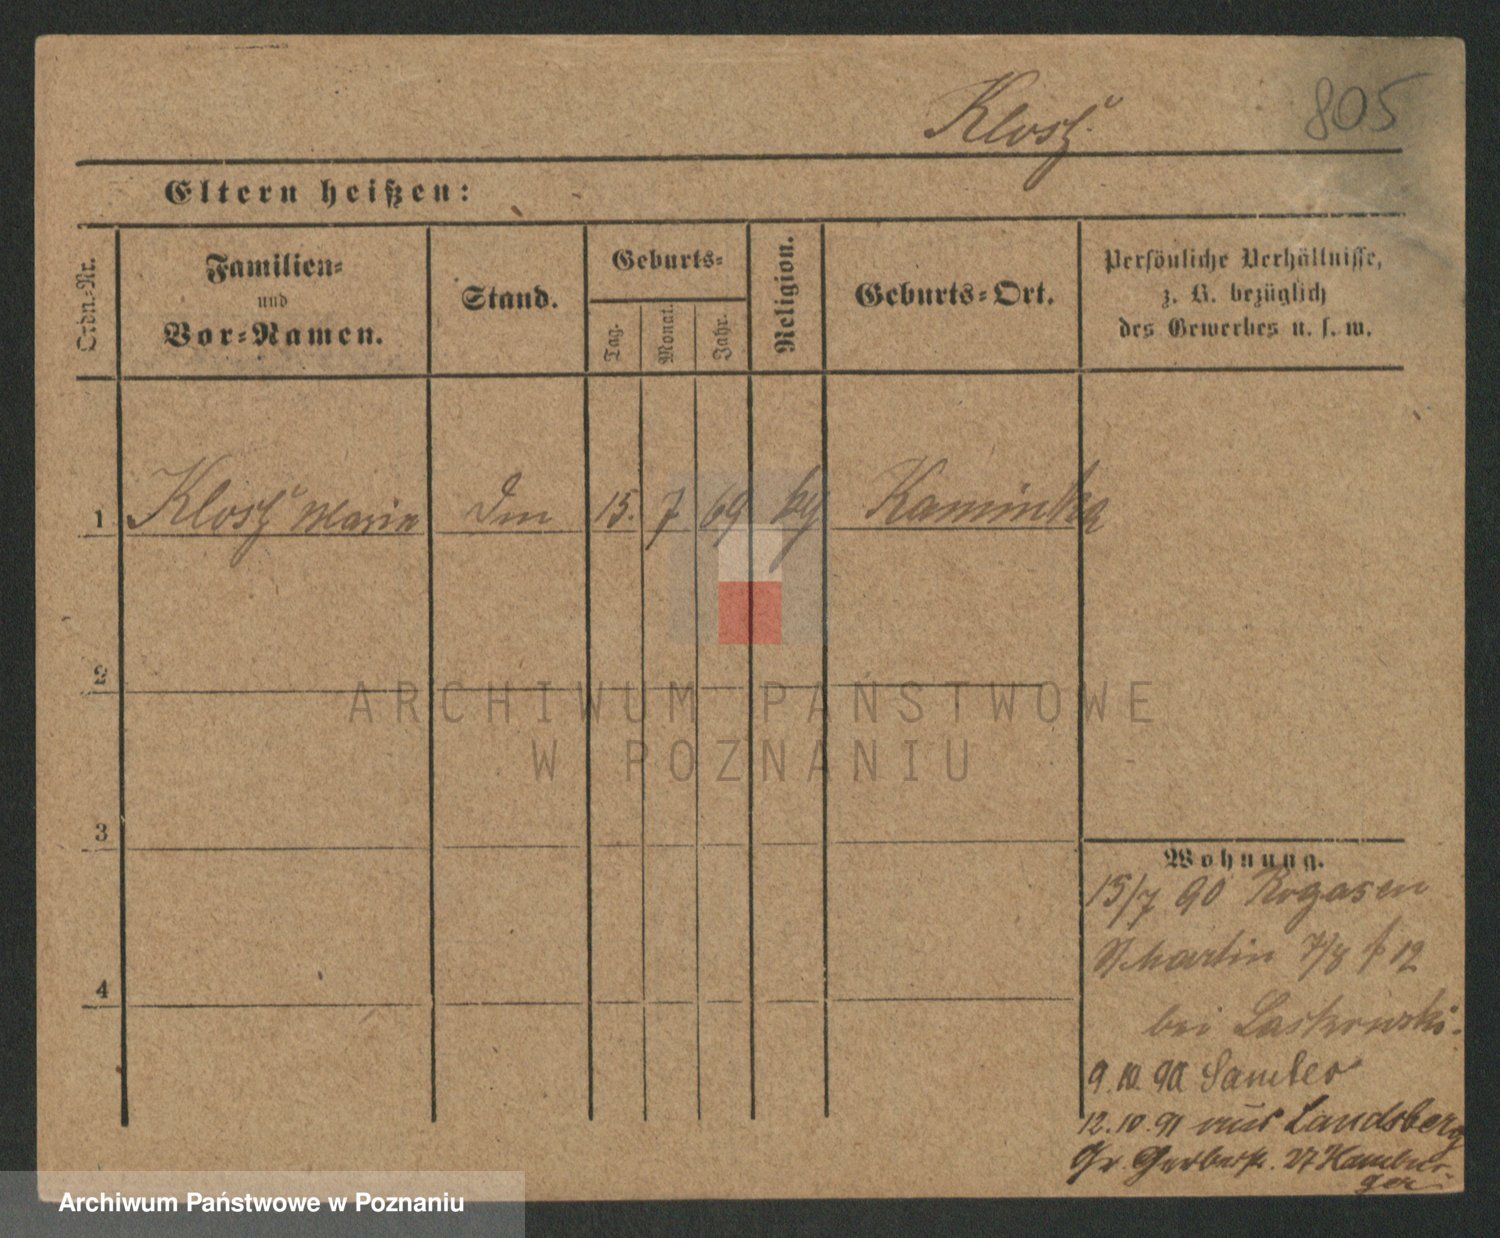 805
Eltern heißen:
Ordn.-Nr.
Familien-
und
Vor-Namen.
Stand.
Geburts-
Tag.
Monat.
Jahr.
Religion.
Geburts-Ort.
Persönliche Verhältnisse,
z. B. bezüglich
des Gewerbes u. s. w.
1 Marie 15. 7 69 Kaminka
2
3
4
Wohnung.
15/7 90 Rogasen
Martin 7/8 12
bei Laskowski.
9.10.90 Samter
12.10.91 aus Landsberg
Gr. Gerberst. 27 Hambur-
ger
ARCHIWUM PAŃSTWOWE
W POZNANIU
Archiwum Państwowe w Poznaniu